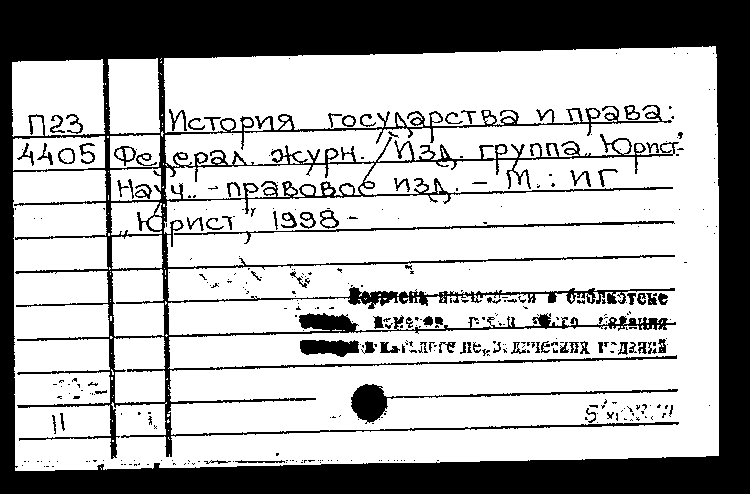 П23 История государства и права:
4405 Федерал. журн. / Изд. группа „Юрист“
Науч. - правовое изд. – М.: ИГ
„Юрист“, 1998 -
Перечень имеющихся в библиотеке
номеров, этого издания
в каталоге периодических изданий
11